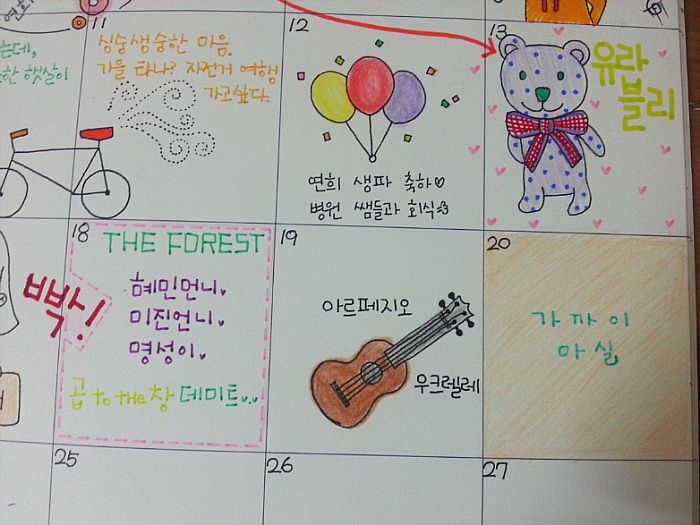 연희
는데,
한 햇살이
11
싱숭생숭한 마음.
가을 타나? 자전거 여행
가고싶다.
12
연희 생파 축하♡
병원 쌤들과 회식
13
유라
블리
빡!
18
THE FOREST
혜민언니♥
미진언니♥
명성이♥
곱 to the 창 데미트
19
아르페지오
우크렐레
20
가까이
마실
25
26
27